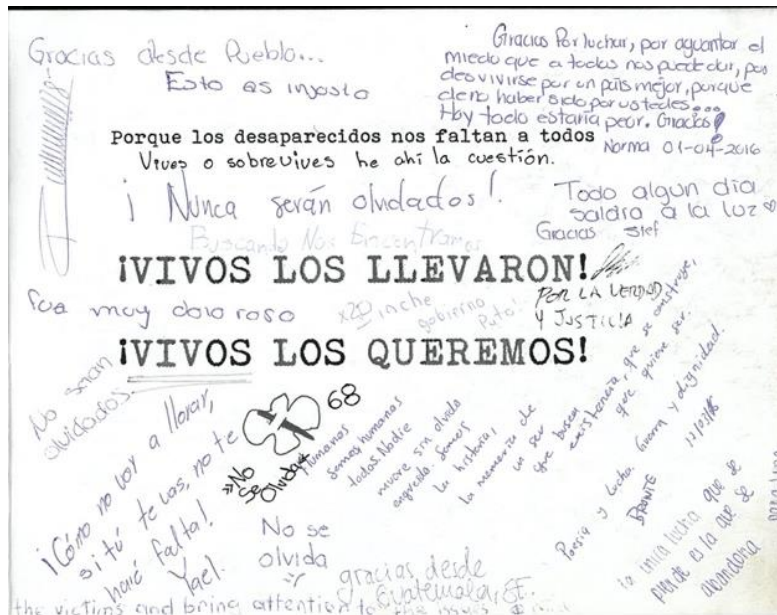 Gracias desde Puebla...
Esto es injusto
Gracias Por luchar, por aguantar el
miedo que a todas nos puede dar, por
desvivirse por un país mejor, porque
de no haber sido por ustedes...
Hoy todo estaría peor. Gracias!
Norma 01-04-2016
Porque los desaparecidos nos faltan a todos
Vives o sobrevives he ahí la cuestión.
¡Nunca serán olvidados!
Todo algun día
saldra a la luz
Gracias Stef
Buscando Nos Encontramos
¡VIVOS LOS LLEVARON!
POR LA VERDAD
Y JUSTICIA
Fue muy doloroso
gobierno
Puto!
¡VIVOS LOS QUEREMOS!
No seran
olvidados.
¡Cómo no voy a llorar,
si tú te vas, no te
haré falta!
Yael.
68
No
se
Olvida
Humanos
somos humanos
todos. Nadie
muere sin olvido
somos
la historia,
la memoria de
un ser
que busca
existencia, que se construye,
que quiere ser.
Poesía y lucha. Guerra y dignidad.
la única lucha que se
pierde es la que se
abandona
No se
olvida
gracias desde
Guatemala,
the victims and bring attention to the